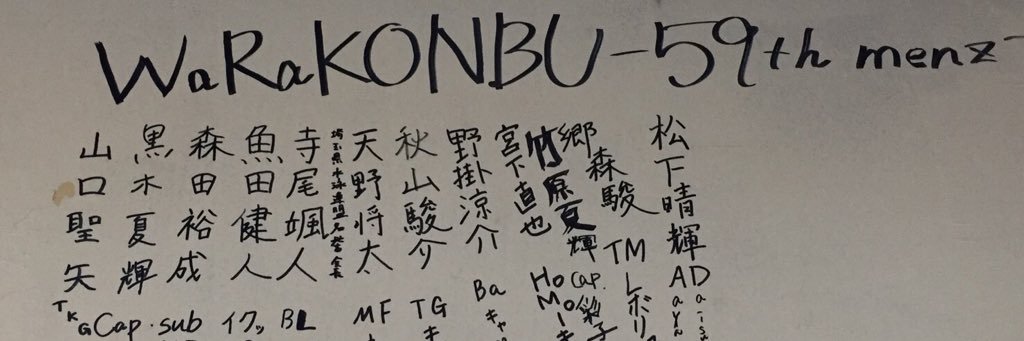 WaRaKONBU-59th menz
松下晴輝 AD
郷森駿 TM レボリ
竹原夏輝 Cap.
宮下直也 HoMo
野掛涼介 Ba キャ
秋山駿介 TG キ
天野将太 MF
寺尾颯人 BL
魚田健人 イクッ
森田裕成 sub
黒木夏輝 Cap.
山口聖矢 TKG